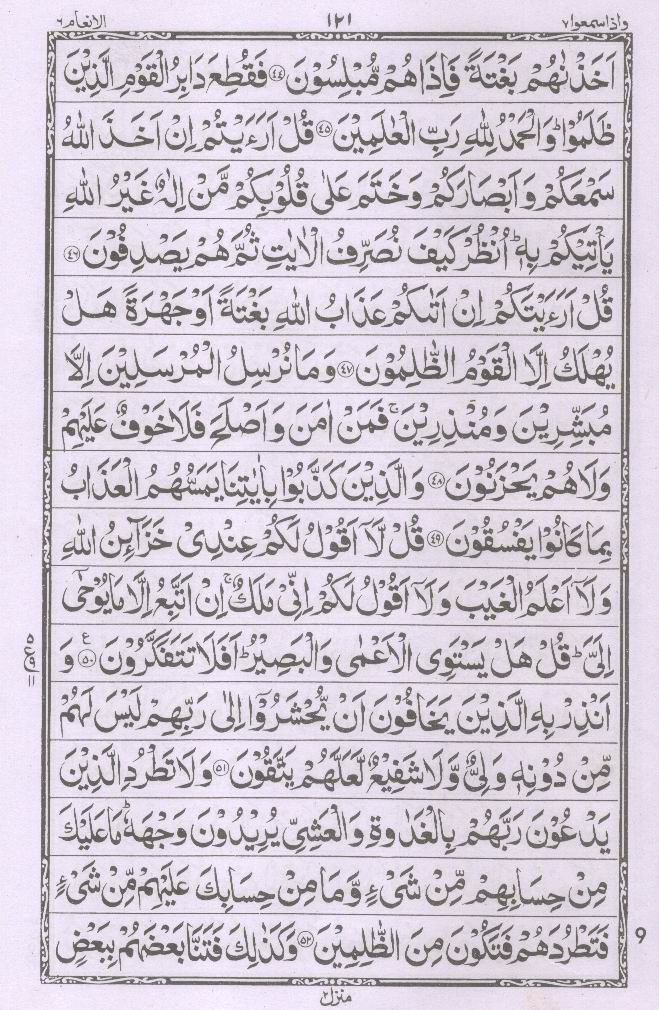 واذاسمعوا٧ ١٢١ الانعام٦
اَخَذْنٰهُمْ بَغْتَةً فَاِذَا هُمْ مُّبْلِسُوْنَ ﴿٤٤﴾ فَقُطِعَ دَابِرُ الْقَوْمِ الَّذِيْنَ
ظَلَمُوْا ؕ وَالْحَمْدُ لِلّٰهِ رَبِّ الْعٰلَمِيْنَ ﴿٤٥﴾ قُلْ اَرَءَيْتُمْ اِنْ اَخَذَ اللّٰهُ
سَمْعَكُمْ وَاَبْصَارَكُمْ وَخَتَمَ عَلٰى قُلُوْبِكُمْ مَّنْ اِلٰهٌ غَيْرُ اللّٰهِ
يَاْتِيْكُمْ بِهٖ ؕ اُنْظُرْ كَيْفَ نُصَرِّفُ الْاٰيٰتِ ثُمَّ هُمْ يَصْدِفُوْنَ ﴿٤٦﴾
قُلْ اَرَءَيْتَكُمْ اِنْ اَتٰىكُمْ عَذَابُ اللّٰهِ بَغْتَةً اَوْ جَهْرَةً هَلْ
يُهْلَكُ اِلَّا الْقَوْمُ الظّٰلِمُوْنَ ﴿٤٧﴾ وَمَا نُرْسِلُ الْمُرْسَلِيْنَ اِلَّا
مُبَشِّرِيْنَ وَمُنْذِرِيْنَ ۚ فَمَنْ اٰمَنَ وَاَصْلَحَ فَلَا خَوْفٌ عَلَيْهِمْ
وَلَا هُمْ يَحْزَنُوْنَ ﴿٤٨﴾ وَالَّذِيْنَ كَذَّبُوْا بِاٰيٰتِنَا يَمَسُّهُمُ الْعَذَابُ
بِمَا كَانُوْا يَفْسُقُوْنَ ﴿٤٩﴾ قُلْ لَّاۤ اَقُوْلُ لَكُمْ عِنْدِىْ خَزَآئِنُ اللّٰهِ
وَلَاۤ اَعْلَمُ الْغَيْبَ وَلَاۤ اَقُوْلُ لَكُمْ اِنِّىْ مَلَكٌ ۚ اِنْ اَتَّبِعُ اِلَّا مَا يُوْحٰۤى
اِلَىَّ ؕ قُلْ هَلْ يَسْتَوِى الْاَعْمٰى وَالْبَصِيْرُ ؕ اَفَلَا تَتَفَكَّرُوْنَ ﴿٥٠﴾ ع وَ
٥ ع ٩ ١١
اَنْذِرْ بِهِ الَّذِيْنَ يَخَافُوْنَ اَنْ يُّحْشَرُوْۤا اِلٰى رَبِّهِمْ لَيْسَ لَهُمْ
مِّنْ دُوْنِهٖ وَلِىٌّ وَّلَا شَفِيْعٌ لَّعَلَّهُمْ يَتَّقُوْنَ ﴿٥١﴾ وَلَا تَطْرُدِ الَّذِيْنَ
يَدْعُوْنَ رَبَّهُمْ بِالْغَدٰوةِ وَالْعَشِىِّ يُرِيْدُوْنَ وَجْهَهٗ ؕ مَا عَلَيْكَ
مِنْ حِسَابِهِمْ مِّنْ شَىْءٍ وَّمَا مِنْ حِسَابِكَ عَلَيْهِمْ مِّنْ شَىْءٍ
فَتَطْرُدَهُمْ فَتَكُوْنَ مِنَ الظّٰلِمِيْنَ ﴿٥٢﴾ وَكَذٰلِكَ فَتَنَّا بَعْضَهُمْ بِبَعْضٍ
9
منزل٢